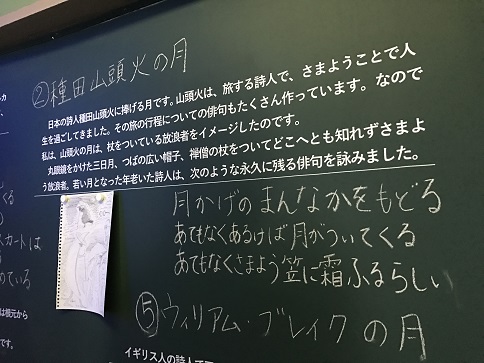 ②種田山頭火の月
日本の詩人種田山頭火に捧げる月です。山頭火は、旅する詩人で、さまようことで人
生を過ごしてきました。その旅の行程についての俳句もたくさん作っています。なので
私は、山頭火の月は、杖をついている放浪者をイメージしたのです。
丸眼鏡をかけた三日月、つばの広い帽子、禅僧の杖をついてどこへとも知れずさまよ
う放浪者。若い月となった年老いた詩人は、次のような永久に残る俳句を詠みました。
月かげのまんなかをもどる
あてもなくあるけば月がついてくる
あてもなくさまよう笠に霜ふるらしい
⑤ウィリアム・ブレイクの月
イギリス人の詩人で
くる
スカートは
ている
は根元から
です。